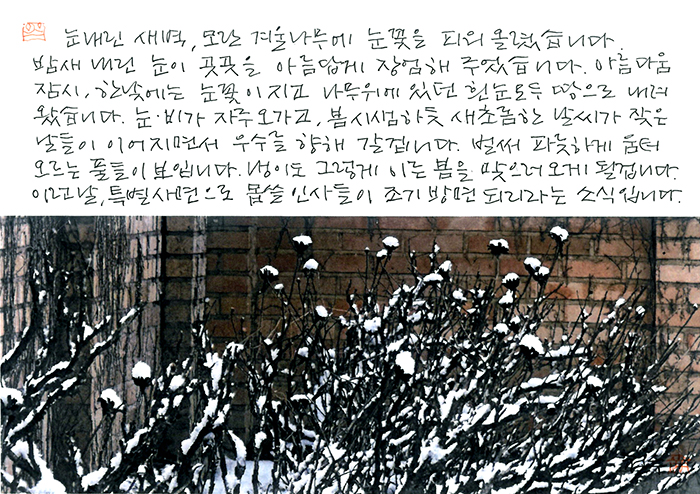 눈내린 새벽, 모란 겨울나무에 눈꽃을 피워 올렸습니다.
밤새 내린 눈이 곳곳을 아름답게 장엄해 주었습니다. 아름다움
잠시, 한낮에는 눈꽃이 지고 나무위에 있던 흰눈 모두 땅으로 내려
왔습니다. 눈·비가 자주 오가고, 봄시심하듯 새초롬한 날씨가 잦은
날들이 이어지면서 우수를 향해 갈겁니다. 벌써 파릇하게 움터
오르는 풀들이 보입니다. 냉이도 그렇게 이른 봄을 맞으러 오게 될겁니다.
이런날, 특별사면으로 몹쓸 인사들이 조기 방면 되리라는 소식입니다.